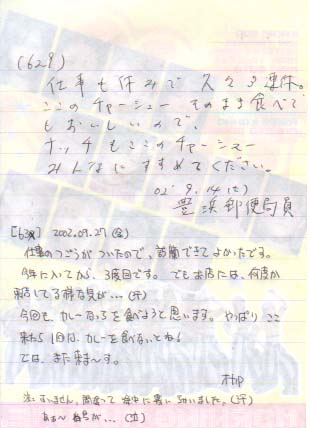 (629)
仕事も休みで久々3連休。
ここのチャーシューそのまま食べて
もおいしいので、
ナッチもここのチャーシュー
みんなにすすめてください。
02' 9. 14 (土)
豊浜郵便局員
2002.09.27 (金)
仕事のつごうがついたので、訪問できてよかったです。
今年に入ってから、3度目です。でもお店には、何度か
来店してる様な気が…(汗)
今回も、カレーなっちを食べようと思います。やっぱりここ
来たら1回は、カレーを食べないとね!
では、また来ま〜す。
注:すいません、間違って途中に書いちゃいました。(汗)
あぁ〜 番号が…(泣)